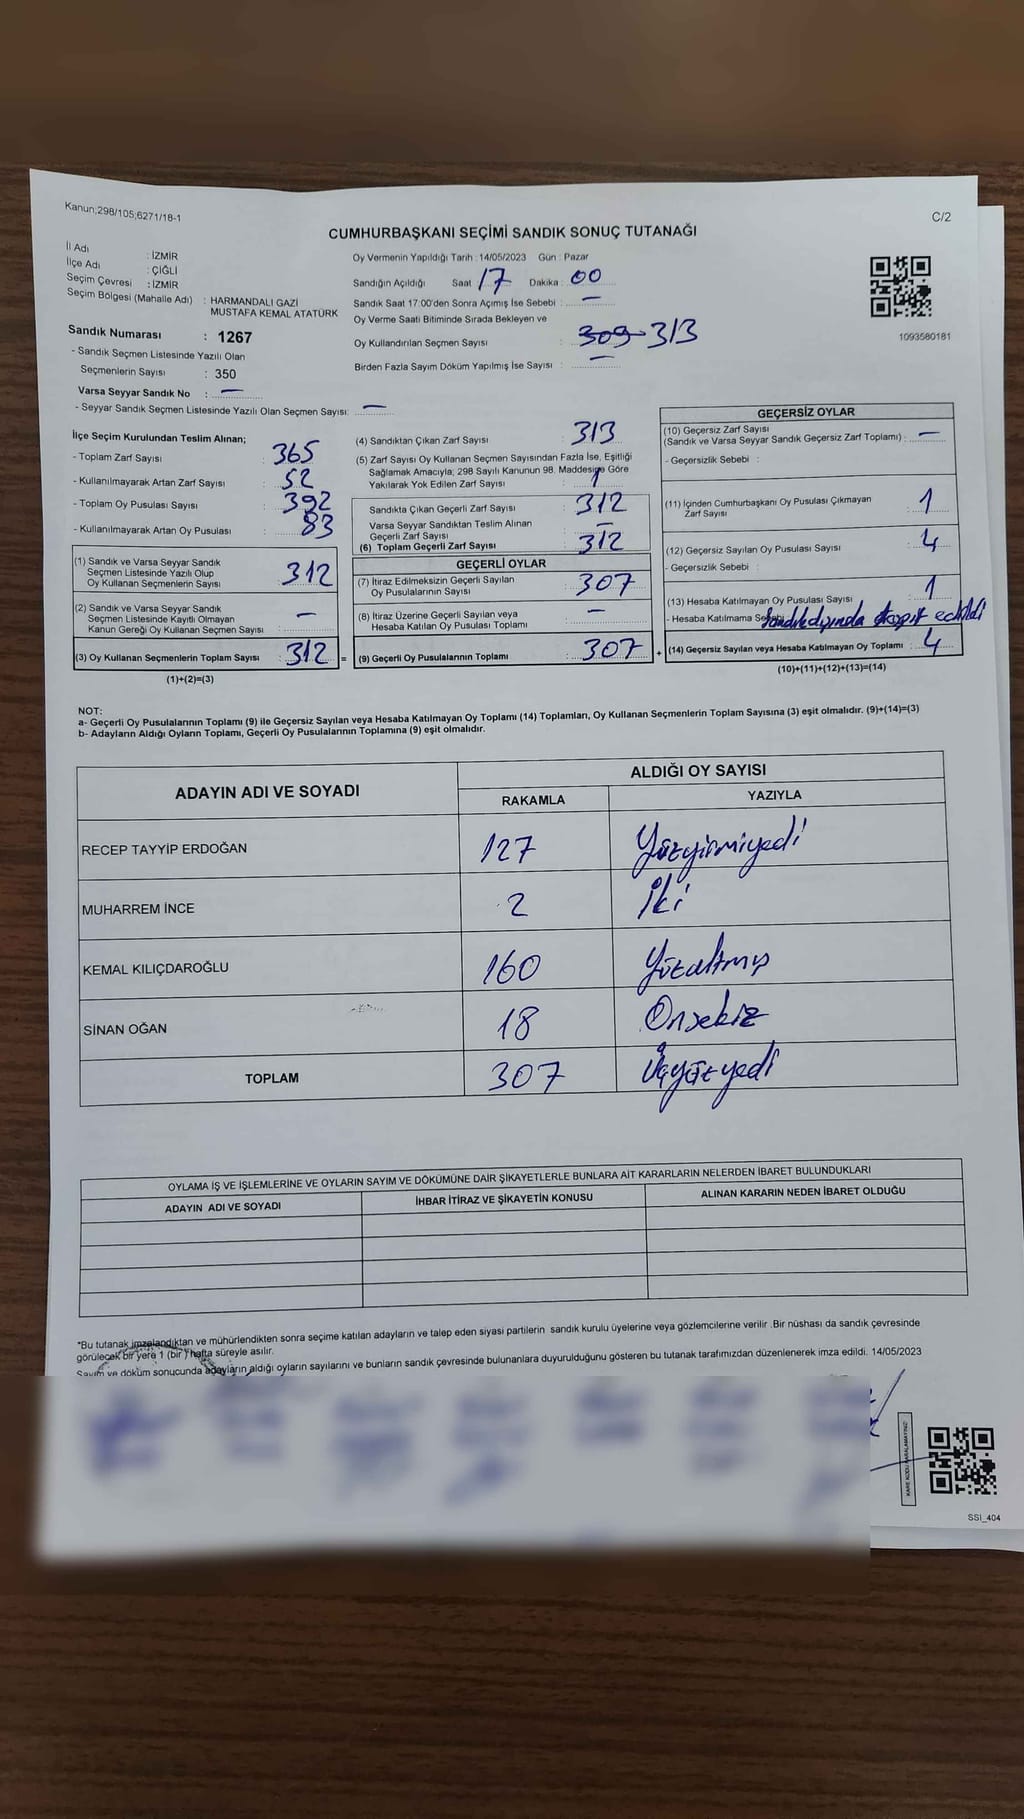 Kanun;298/105;6271/18-1
C/2
CUMHURBAŞKANI SEÇİMİ SANDIK SONUÇ TUTANAĞI
İl Adı : İZMİR
İlçe Adı : ÇİĞLİ
Seçim Çevresi : İZMİR
Seçim Bölgesi (Mahalle Adı) : HARMANDALI GAZİ
MUSTAFA KEMAL ATATÜRK
Sandık Numarası : 1267
- Sandık Seçmen Listesinde Yazılı Olan
Seçmenlerin Sayısı : 350
Varsa Seyyar Sandık No : —
- Seyyar Sandık Seçmen Listesinde Yazılı Olan Seçmen Sayısı: —
Oy Vermenin Yapıldığı Tarih : 14/05/2023 Gün : Pazar
Sandığın Açıldığı Saat 17 Dakika : 00
Sandık Saat 17:00'den Sonra Açımış İse Sebebi : —
Oy Verme Saati Bitiminde Sırada Bekleyen ve
Oy Kullandırılan Seçmen Sayısı : 309 313
Birden Fazla Sayım Döküm Yapılmış İse Sayısı : —
1093580181
İlçe Seçim Kurulundan Teslim Alınan;
- Toplam Zarf Sayısı : 365
- Kullanılmayarak Artan Zarf Sayısı : 52
- Toplam Oy Pusulası Sayısı : 392
- Kullanılmayarak Artan Oy Pusulası : 83
(1) Sandık ve Varsa Seyyar Sandık
Seçmen Listesinde Yazılı Olup
Oy Kullanan Seçmenlerin Sayısı : 312
(2) Sandık ve Varsa Seyyar Sandık
Seçmen Listesinde Kayıtlı Olmayan
Kanun Gereği Oy Kullanan Seçmen Sayısı : —
(3) Oy Kullanan Seçmenlerin Toplam Sayısı : 312 =
(1)+(2)=(3)
(4) Sandıktan Çıkan Zarf Sayısı : 313
(5) Zarf Sayısı Oy Kullanan Seçmen Sayısından Fazla İse, Eşitliği
Sağlamak Amacıyla; 298 Sayılı Kanunun 98. Maddesine Göre
Yakılarak Yok Edilen Zarf Sayısı : 1
Sandıkta Çıkan Geçerli Zarf Sayısı : 312
Varsa Seyyar Sandıktan Teslim Alınan
Geçerli Zarf Sayısı : —
(6) Toplam Geçerli Zarf Sayısı : 312
GEÇERLİ OYLAR
(7) İtiraz Edilmeksizin Geçerli Sayılan
Oy Pusulalarının Sayısı : 307
(8) İtiraz Üzerine Geçerli Sayılan veya
Hesaba Katılan Oy Pusulası Toplamı : —
(9) Geçerli Oy Pusulalarının Toplamı : 307 +
GEÇERSİZ OYLAR
(10) Geçersiz Zarf Sayısı
(Sandık ve Varsa Seyyar Sandık Geçersiz Zarf Toplamı) : —
- Geçersizlik Sebebi :
(11) İçinden Cumhurbaşkanı Oy Pusulası Çıkmayan
Zarf Sayısı : 1
(12) Geçersiz Sayılan Oy Pusulası Sayısı : 4
- Geçersizlik Sebebi :
(13) Hesaba Katılmayan Oy Pusulası Sayısı : 1
- Hesaba Katılmama Sebebi Sandık dışında tespit edildi
(14) Geçersiz Sayılan veya Hesaba Katılmayan Oy Toplamı : 4
(10)+(11)+(12)+(13)=(14)
NOT:
a- Geçerli Oy Pusulalarının Toplamı (9) ile Geçersiz Sayılan veya Hesaba Katılmayan Oy Toplamı (14) Toplamları, Oy Kullanan Seçmenlerin Toplam Sayısına (3) eşit olmalıdır. (9)+(14)=(3)
b- Adayların Aldığı Oyların Toplamı, Geçerli Oy Pusulalarının Toplamına (9) eşit olmalıdır.
ADAYIN ADI VE SOYADI
ALDIĞI OY SAYISI
RAKAMLA YAZIYLA
RECEP TAYYİP ERDOĞAN 127 Yüzyirmiyedi
MUHARREM İNCE 2 İki
KEMAL KILIÇDAROĞLU 160 Yüzaltmış
SİNAN OĞAN 18 Onsekiz
TOPLAM 307 Üçyüzyedi
OYLAMA İŞ VE İŞLEMLERİNE VE OYLARIN SAYIM VE DÖKÜMÜNE DAİR ŞİKAYETLERLE BUNLARA AİT KARARLARIN NELERDEN İBARET BULUNDUKLARI
ADAYIN ADI VE SOYADI İHBAR İTİRAZ VE ŞİKAYETİN KONUSU ALINAN KARARIN NEDEN İBARET OLDUĞU
*Bu tutanak imzalandıktan ve mühürlendikten sonra seçime katılan adayların ve talep eden siyasi partilerin sandık kurulu üyelerine veya gözlemcilerine verilir .Bir nüshası da sandık çevresinde
görülecek bir yere 1 (bir ) hafta süreyle asılır.
Sayım ve döküm sonucunda adayların aldığı oyların sayılarını ve bunların sandık çevresinde bulunanlara duyurulduğunu gösteren bu tutanak tarafımızdan düzenlenerek imza edildi. 14/05/2023
KARE KODU KARALAMAYINIZ!
SSI_404